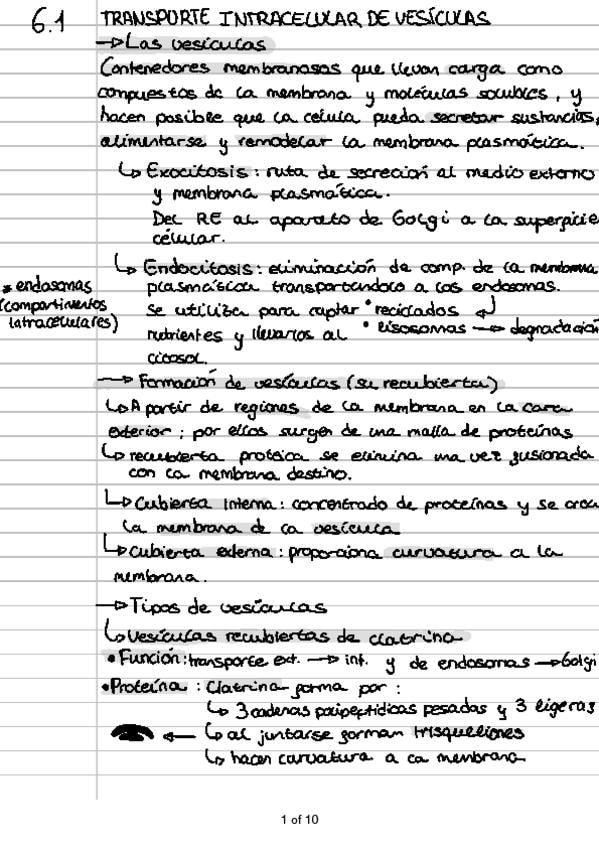 6.1 TRANSPORTE INTRACELULAR DE VESÍCULAS
→ Las vesículas
Contenedores membranosos que llevan carga como
compuestos de la membrana y moléculas solubles, y
hacen posible que la celula pueda secretar sustancias,
alimentarse y remodelar la membrana plasmática.
↳ Exocitosis: ruta de secreción al medio externo
y membrana plasmática.
Del RE al aparato de Golgi a la superficie
célular.
↳ Endocitosis: eliminación de comp. de la membrana
* endosomas
(compartimentos
intracelulares)
plasmática transportandolo a los endosomas.
se utiliza para captar • reciclados ↲
nutrientes y llevarlos al • lisosomas → degradación
citosol.
→ Formación de vesículas (su recubierta)
↳ A partir de regiones de la membrana en la cara
exterior; por ellos surgen de una malla de proteínas
↳ recubierta proteica se elimina una vez fusionada
con la membrana destino.
↳ Cubierta Interna: concentrado de proteínas y se crea
la membrana de la vesícula
↳ Cubierta externa: proporciona curvatura a la
membrana.
→ Tipos de vesículas
↳ Vesículas recubiertas de clatrina
• Función: transporte ext. → int. y de endosomas → Golgi
• Proteína: Clatrina forma por:
↳ 3 cadenas polipeptídicas pesadas y 3 ligeras
← ↳ al juntarse forman trisqueliones
↳ hacen curvatura a la membrana
1 of 10